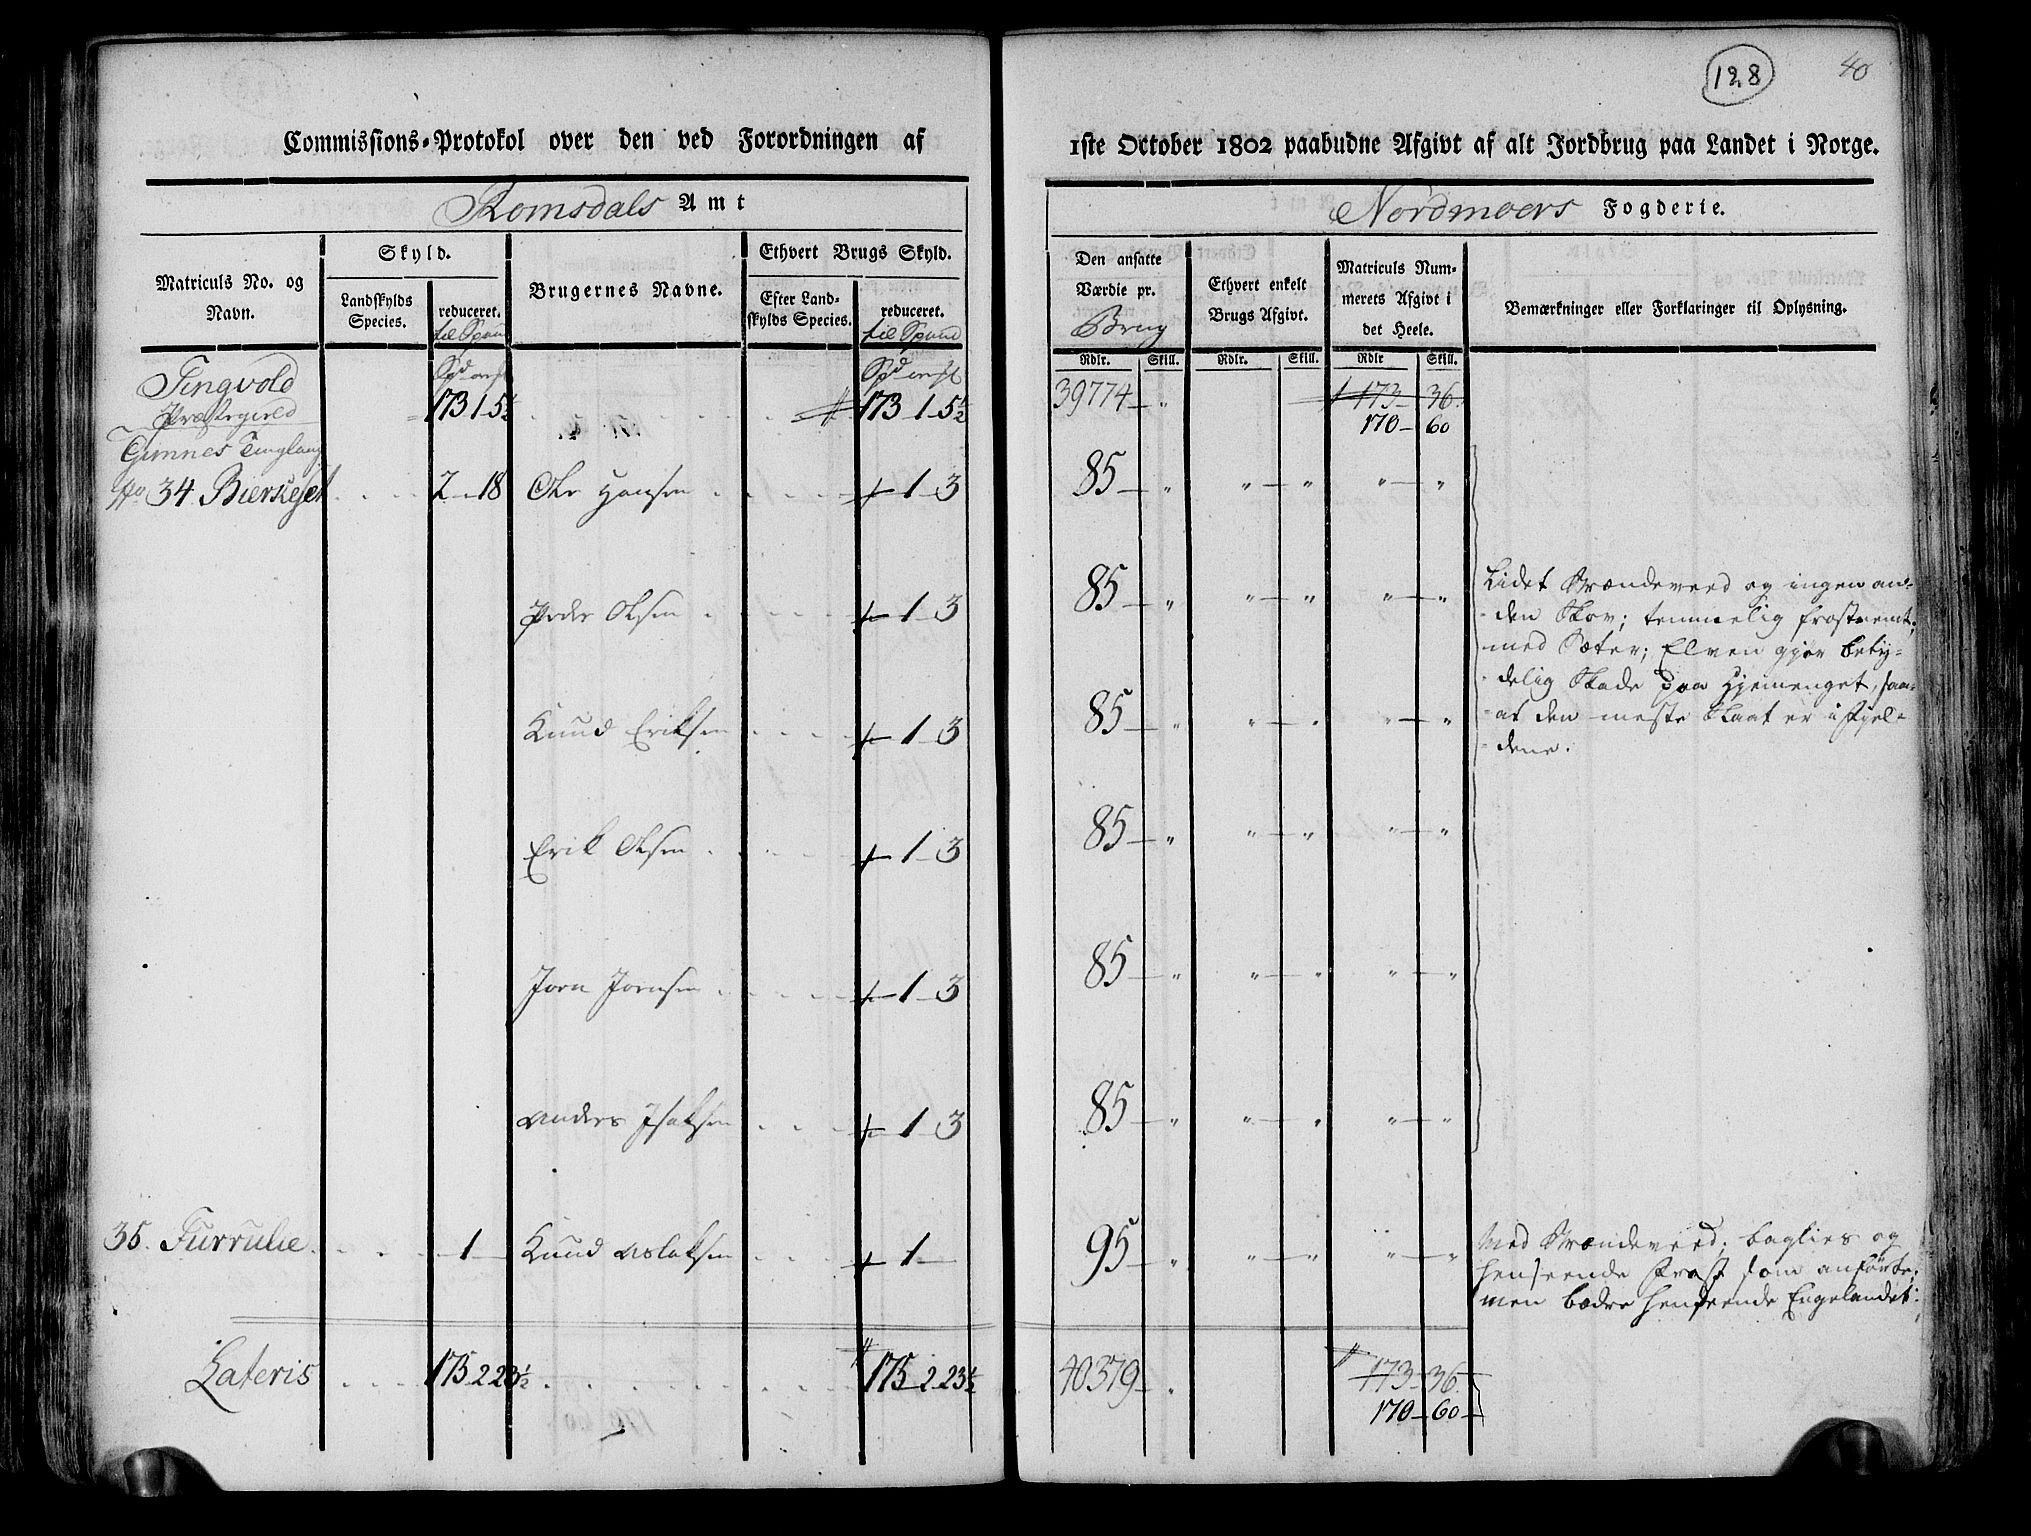 128
40
Commissions-Protokol over den ved Forordningen af
1ste October 1802 paabudne Afgivt af alt Jordbrug paa Landet i Norge.
Romsdals Amt
Nordmoers Fogderie.
Matriculs No. og Navn.
Skyld.
Landskylds Species.
reduceret. til Spand
Brugernes Navne.
Ethvert Brugs Skyld.
Efter Landskylds Species.
reduceret. til Spand
Den ansatte Værdie pr. Brug
Ethvert enkelt Brugs Afgivt.
Matriculs Nummerets Afgivt i det Heele.
Bemærkninger eller Forklaringer til Oplysning.
Rdlr. Skill. Rdlr. Skill. Rdlr Skill.
Tingvold
Præstegield 173 1 5½ 173 1 5½ 39774 " 1173 36
170 60
Gimnes Tinglaug
No 34. Bierskjet 2 18 Ole Hansen 1 3 85 " " " " "
Peder Olsen 1 3 85 " " " " "
Knud Eriksen 1 3 85 " " " " "
Erik Olsen 1 3 85 " " " " "
Jorn Jornsen 1 3 85 " " " " "
Anders Isaksen 1 3 85 " " " " "
Lidet Brændeved og ingen an-
den Skov; temmelig frostnemt;
med Sæter; Elven gjør bety-
delig Skade paa Hjemenget, saa-
at den meste Slaat er i Fjel-
dene.
35. Furrulie 1 Knud Aslaksen 1 95 " " " " "
Med Brændeved; baglies og
henseende Frost som anførte;
men bedre henseende Engelandet.
Lateris 175 2 23½ 175 2 23½ 40379 " 173 36
170 60